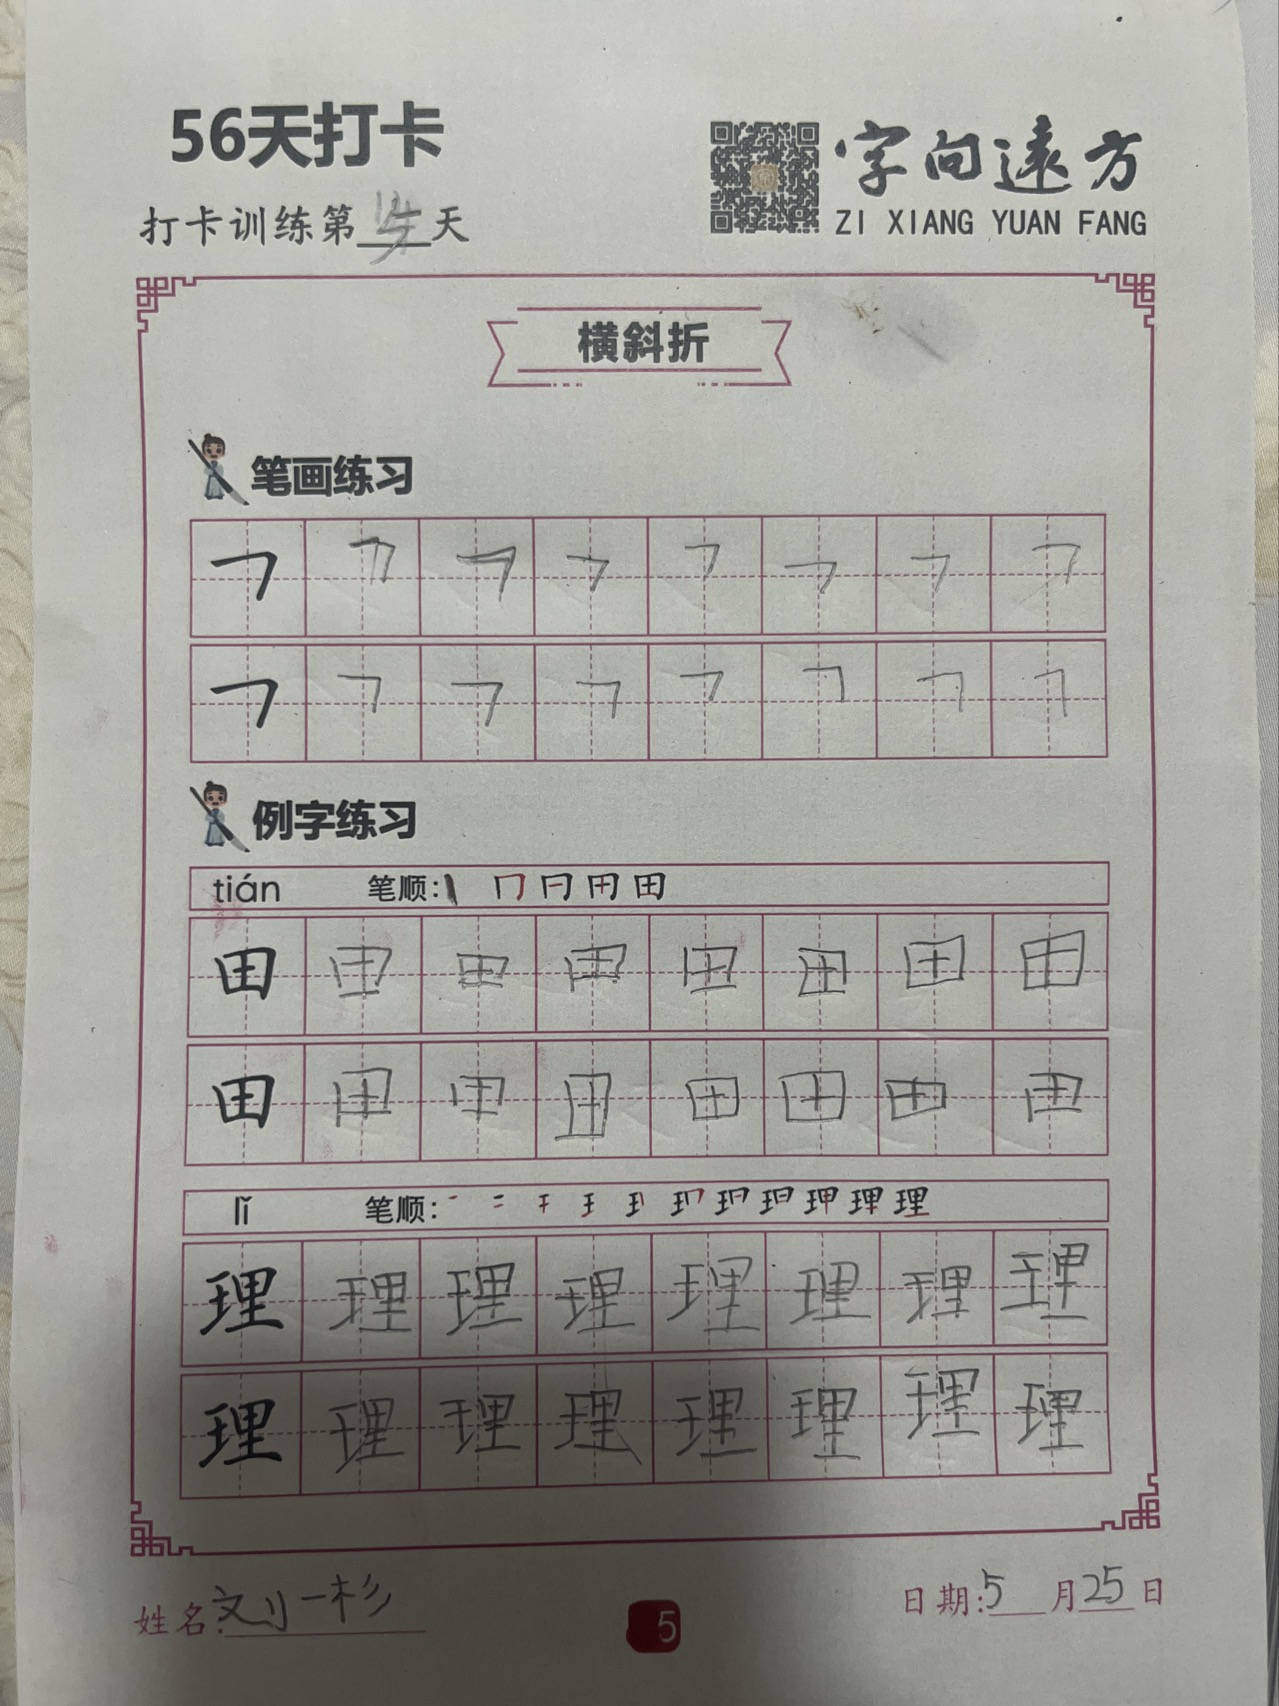 56天打卡
字向遠方
打卡训练第 天
ZI XIANG YUAN FANG
横斜折
笔画练习
例字练习
tián 笔顺: 田
田 田 田 田 田 田 田 田
田 田 田 田 田 田 田 田
lǐ 笔顺: 理
理 理 理 理 理 理 理 理
理 理 理 理 理 理 理 理
姓名:刘一杉
5
日期:5月25日